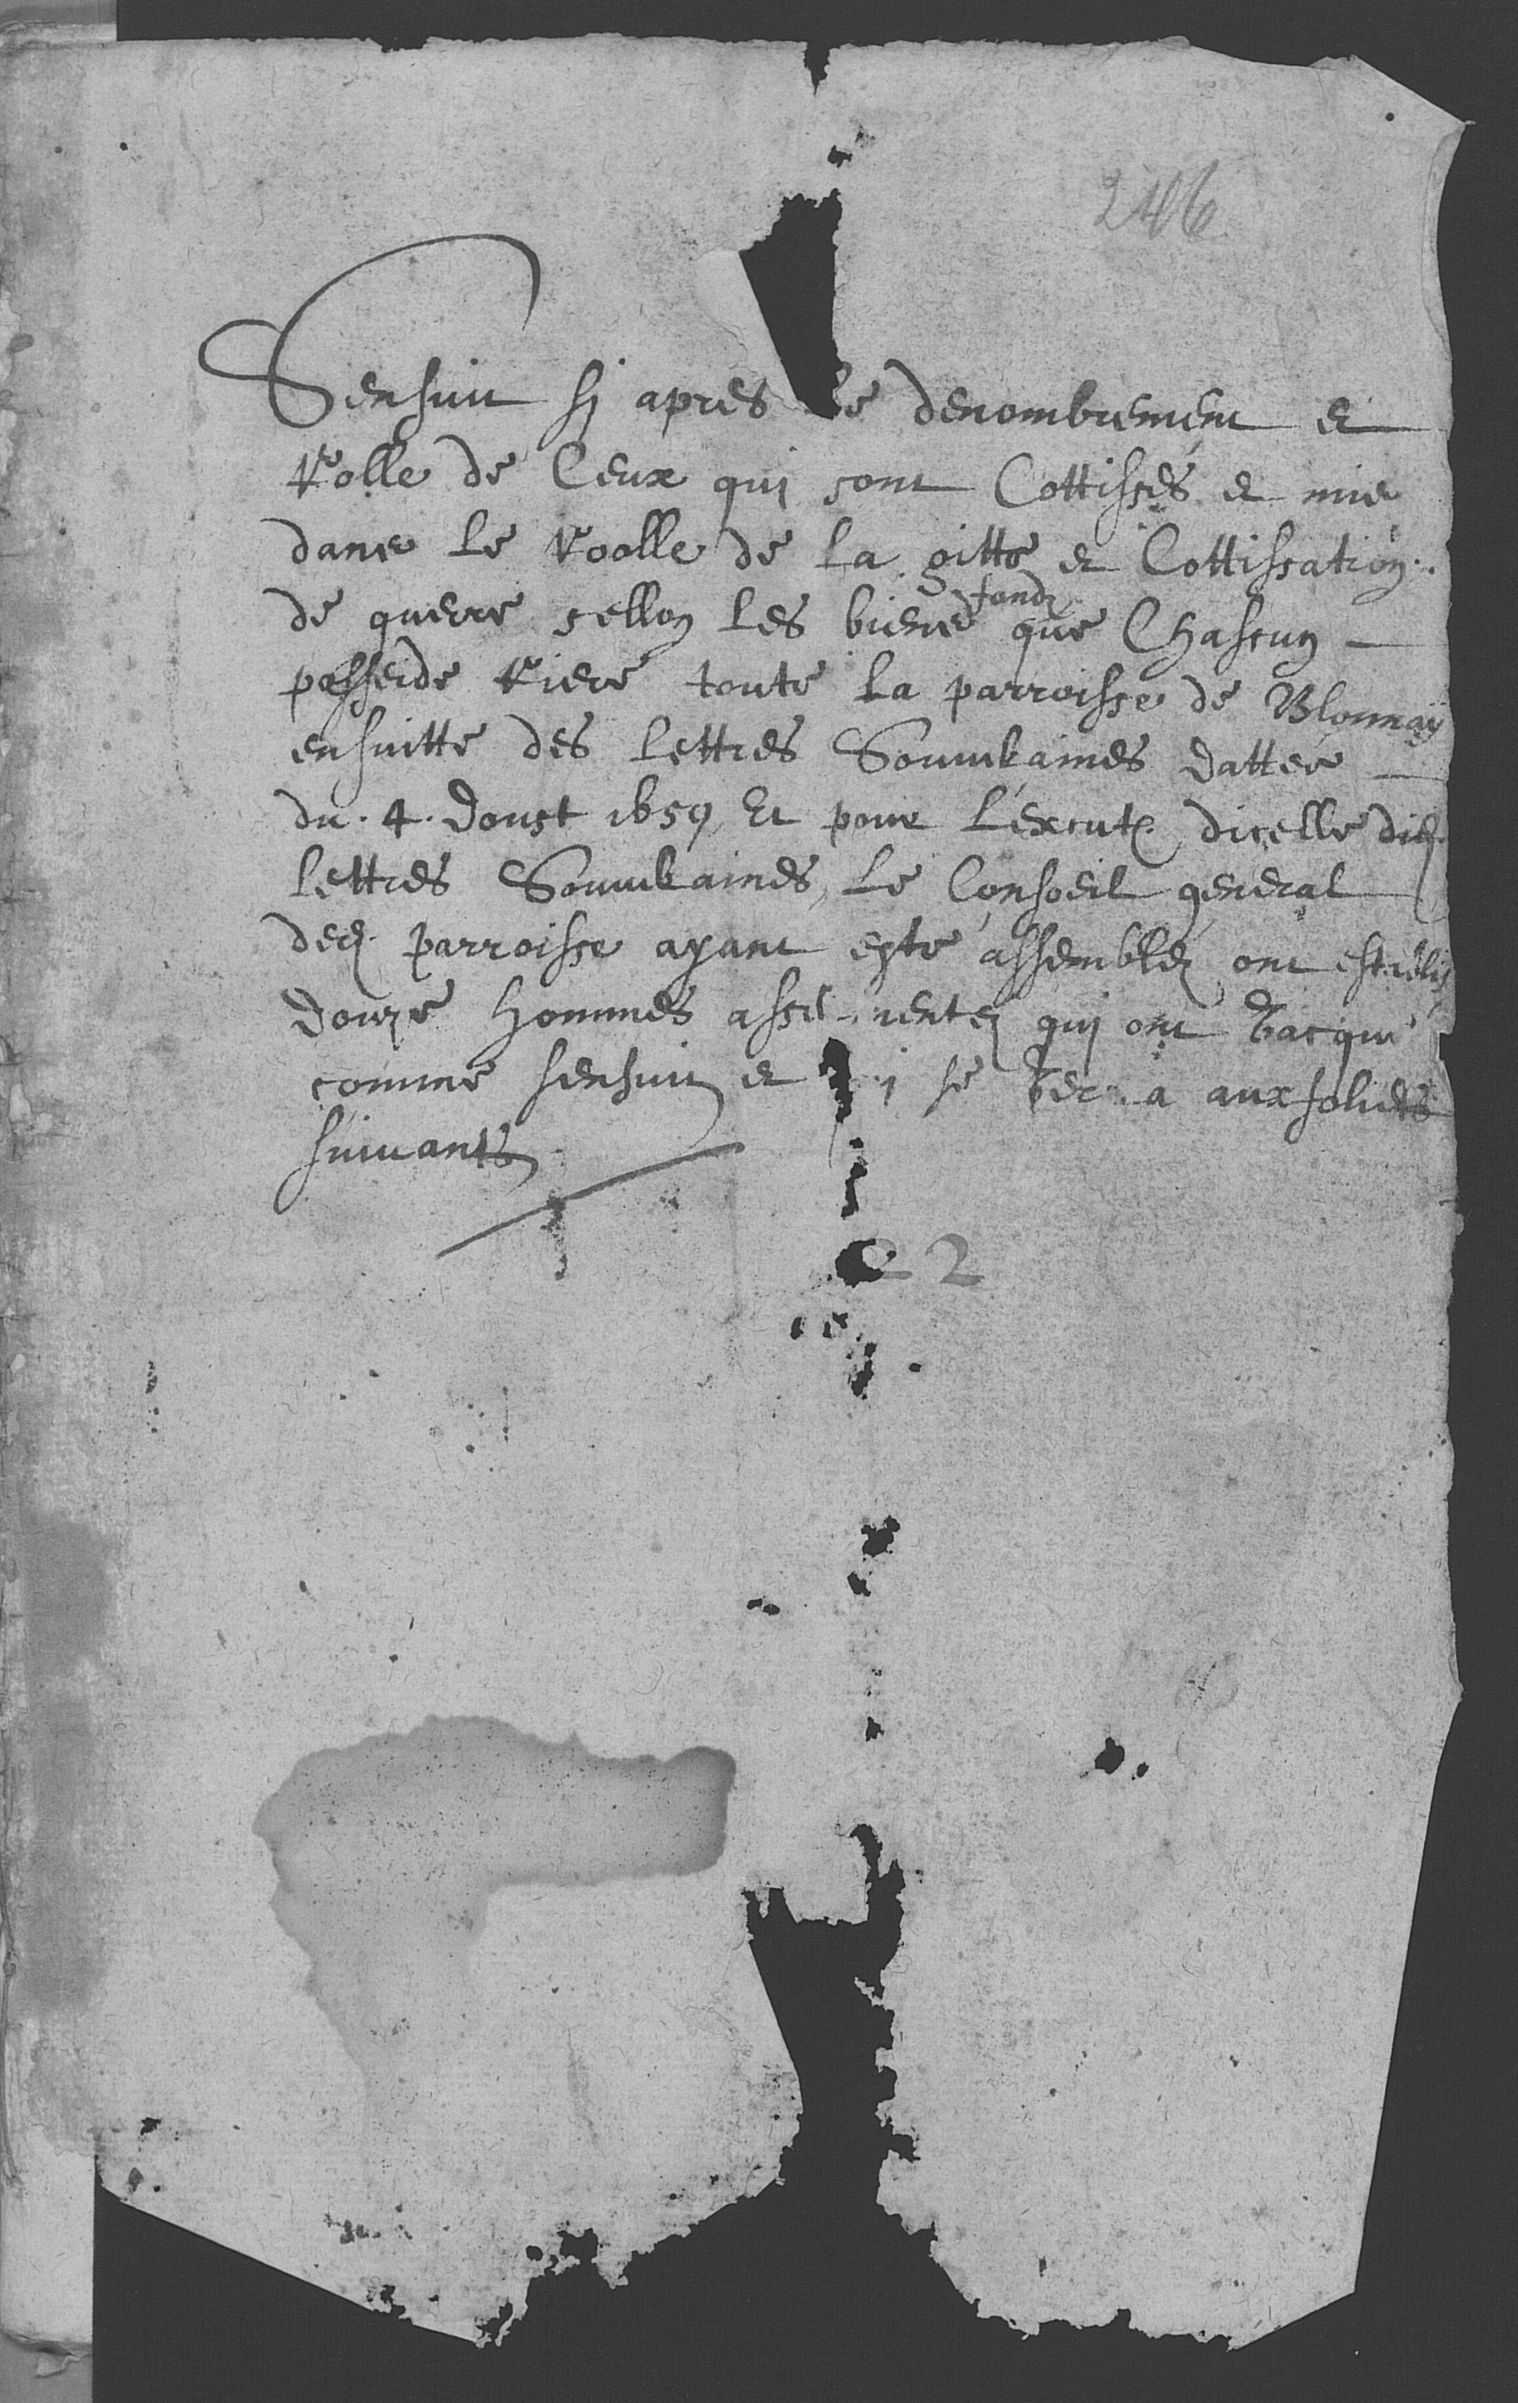 246
Sensuit sj apres le denombrement et
Rolle de Ceux qui sont Cottissés et mis
dans le Roolle de la gitte et Cottissation
de guerre sellon les biens fondz que Chascun
posseide Riere toute la parroisse de Blonnay
ensuitte des lettres Souveraines dattée
du .4. doust 1659 Et pour l'excut͠ dicelle dit͠
lettres Souveraines, le Conseil general
ded͠. parroisse ayant este assemblez ont
douze hommes asser-mentez qui ont vacque
comme sensuit et se verra aux foliets
suivants
22